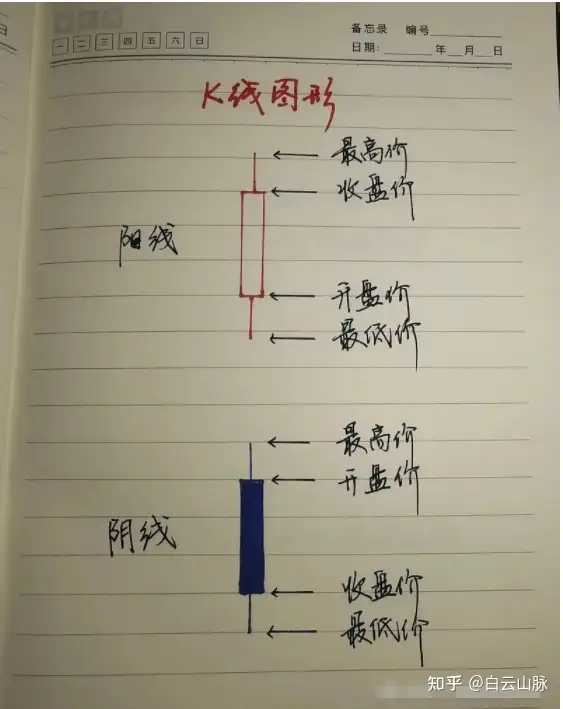 备忘录 编号
一 二 三 四 五 六 日
日期: 年 月 日
K线图形
最高价
收盘价
阳线
开盘价
最低价
最高价
开盘价
阴线
收盘价
最低价
知乎 @白云山脉